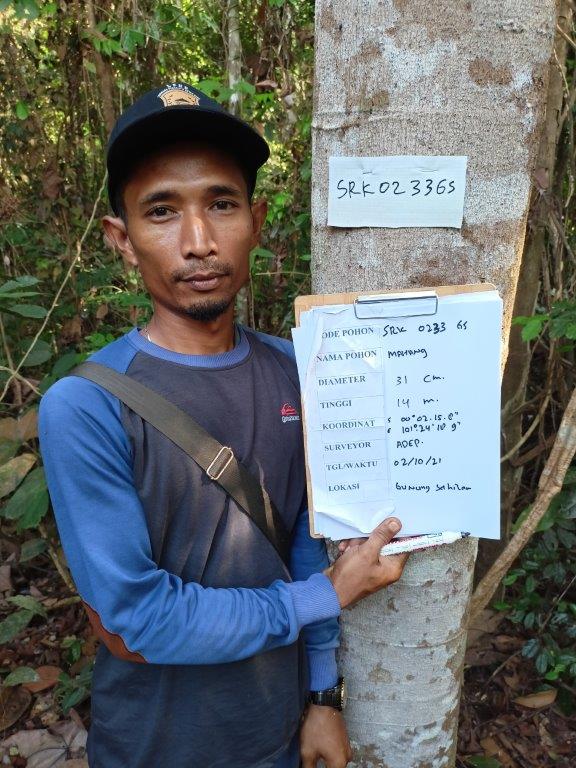 SRK0233GS
ODE POHON SRK 0233 GS
NAMA POHON MAHANG
DIAMETER 31 Cm.
TINGGI 14 m.
KOORDINAT S 00°02.15.8"
E 101°24'18 9"
SURVEYOR ADEP.
TGL/WAKTU 02/10/21
LOKASI Gunung Sahilan